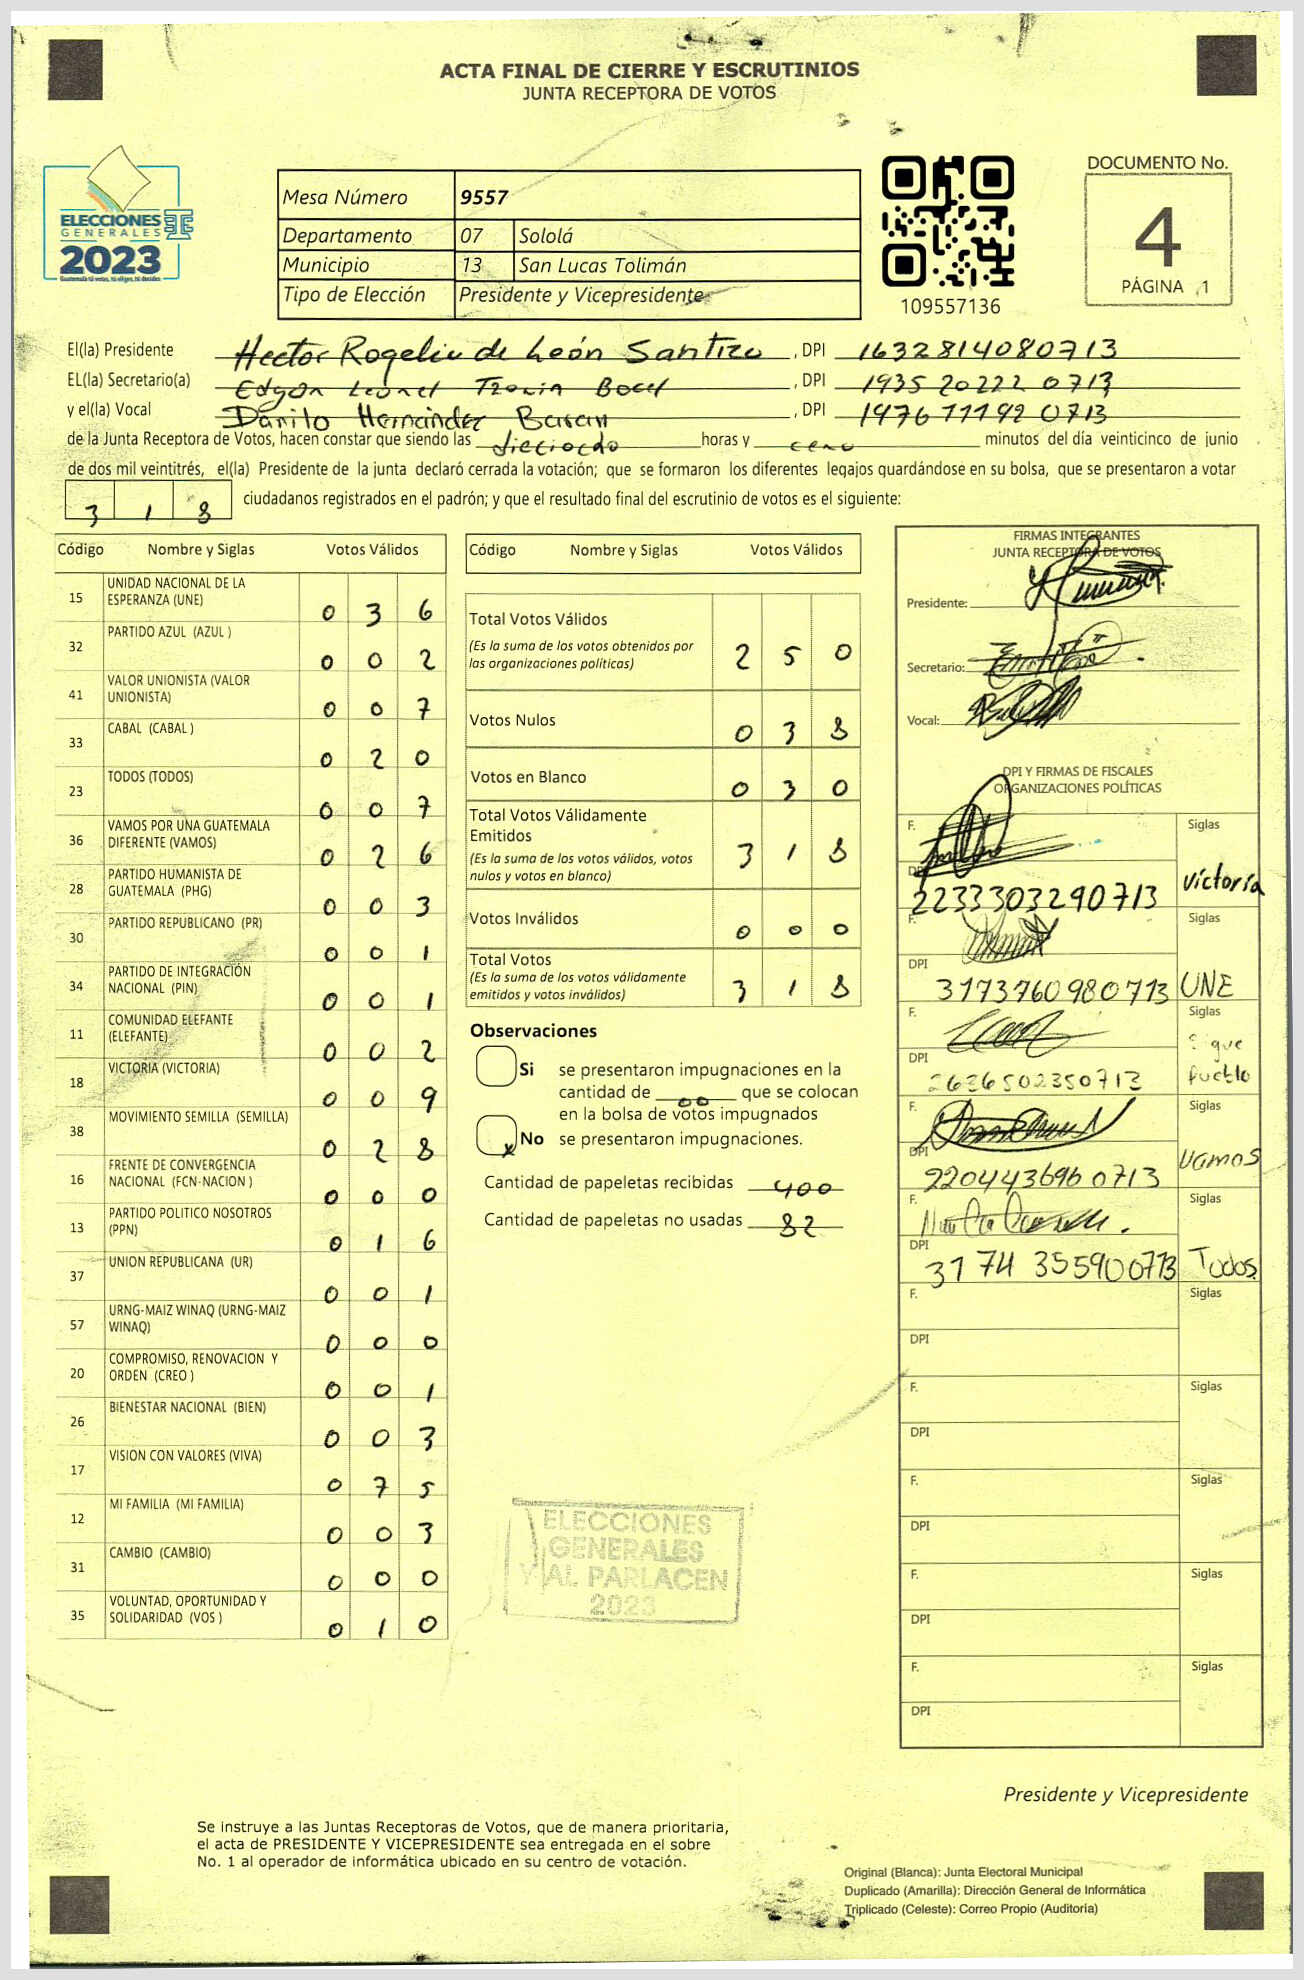 ACTA FINAL DE CIERRE Y ESCRUTINIOS
JUNTA RECEPTORA DE VOTOS
ELECCIONES
GENERALES
2023
Guatemala tú votas, tú eliges, tú decides
Mesa Número 9557
Departamento 07 Sololá
Municipio 13 San Lucas Tolimán
Tipo de Elección Presidente y Vicepresidente
109557136
DOCUMENTO No.
4
PÁGINA 1
El(la) Presidente Hector Rogelio de León Santizo, DPI 1632814080713
EL(la) Secretario(a) Edgar Leonel, DPI 1935 20222 0713
y el(la) Vocal Danilo Hernández, DPI 1976 77792 0713
de la Junta Receptora de Votos, hacen constar que siendo las dieciocho horas y cero minutos del día veinticinco de junio
de dos mil veintitrés, el(la) Presidente de la junta declaró cerrada la votación; que se formaron los diferentes legajos guardándose en su bolsa, que se presentaron a votar
3 1 8 ciudadanos registrados en el padrón; y que el resultado final del escrutinio de votos es el siguiente:
Código Nombre y Siglas Votos Válidos
15 UNIDAD NACIONAL DE LA ESPERANZA (UNE) 0 3 6
32 PARTIDO AZUL (AZUL ) 0 0 2
41 VALOR UNIONISTA (VALOR UNIONISTA) 0 0 7
33 CABAL (CABAL ) 0 2 0
23 TODOS (TODOS) 0 0 7
36 VAMOS POR UNA GUATEMALA DIFERENTE (VAMOS) 0 2 6
28 PARTIDO HUMANISTA DE GUATEMALA (PHG) 0 0 3
30 PARTIDO REPUBLICANO (PR) 0 0 1
34 PARTIDO DE INTEGRACIÓN NACIONAL (PIN) 0 0 1
11 COMUNIDAD ELEFANTE (ELEFANTE) 0 0 2
18 VICTORIA (VICTORIA) 0 0 9
38 MOVIMIENTO SEMILLA (SEMILLA) 0 2 8
16 FRENTE DE CONVERGENCIA NACIONAL (FCN-NACION ) 0 0 0
13 PARTIDO POLITICO NOSOTROS (PPN) 0 1 6
37 UNION REPUBLICANA (UR) 0 0 1
57 URNG-MAIZ WINAQ (URNG-MAIZ WINAQ) 0 0 0
20 COMPROMISO, RENOVACION Y ORDEN (CREO ) 0 0 1
26 BIENESTAR NACIONAL (BIEN) 0 0 3
17 VISION CON VALORES (VIVA) 0 7 5
12 MI FAMILIA (MI FAMILIA) 0 0 3
31 CAMBIO (CAMBIO) 0 0 0
35 VOLUNTAD, OPORTUNIDAD Y SOLIDARIDAD (VOS ) 0 1 0
Código Nombre y Siglas Votos Válidos
Total Votos Válidos 2 5 0
(Es la suma de los votos obtenidos por
las organizaciones políticas)
Votos Nulos 0 3 8
Votos en Blanco 0 3 0
Total Votos Válidamente
Emitidos 3 1 8
(Es la suma de los votos válidos, votos
nulos y votos en blanco)
Votos Inválidos 0 0 0
Total Votos 3 1 8
(Es la suma de los votos válidamente
emitidos y votos inválidos)
Observaciones
Si se presentaron impugnaciones en la
cantidad de 00 que se colocan
en la bolsa de votos impugnados
x No se presentaron impugnaciones.
Cantidad de papeletas recibidas 400
Cantidad de papeletas no usadas 82
ELECCIONES
GENERALES
Y AL PARLACEN
2023
FIRMAS INTEGRANTES
JUNTA RECEPTORA DE VOTOS
Presidente:
Secretario:
Vocal:
DPI Y FIRMAS DE FISCALES
ORGANIZACIONES POLÍTICAS
F. Siglas
DPI 2233303290713 Victoria
F. Siglas
DPI 3173760980713 UNE
F. Siglas
DPI 2636502350713 Sigue Pueblo
F. Siglas
DPI 2204436960713 Vamos
F. Siglas
DPI 3174 355900713 Todos
F. Siglas
DPI
F. Siglas
DPI
F. Siglas
DPI
F. Siglas
DPI
F. Siglas
DPI
Presidente y Vicepresidente
Se instruye a las Juntas Receptoras de Votos, que de manera prioritaria,
el acta de PRESIDENTE Y VICEPRESIDENTE sea entregada en el sobre
No. 1 al operador de informática ubicado en su centro de votación.
Original (Blanca): Junta Electoral Municipal
Duplicado (Amarilla): Dirección General de Informática
Triplicado (Celeste): Correo Propio (Auditoría)